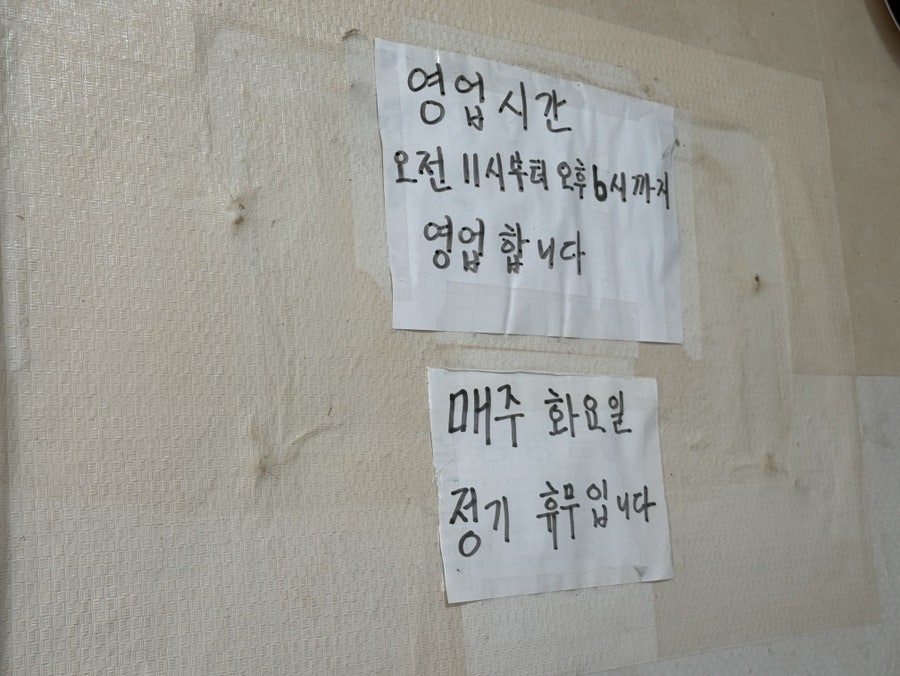 영업시간
오전 11시부터 오후 6시까지
영업합니다
매주 화요일
정기 휴무입니다